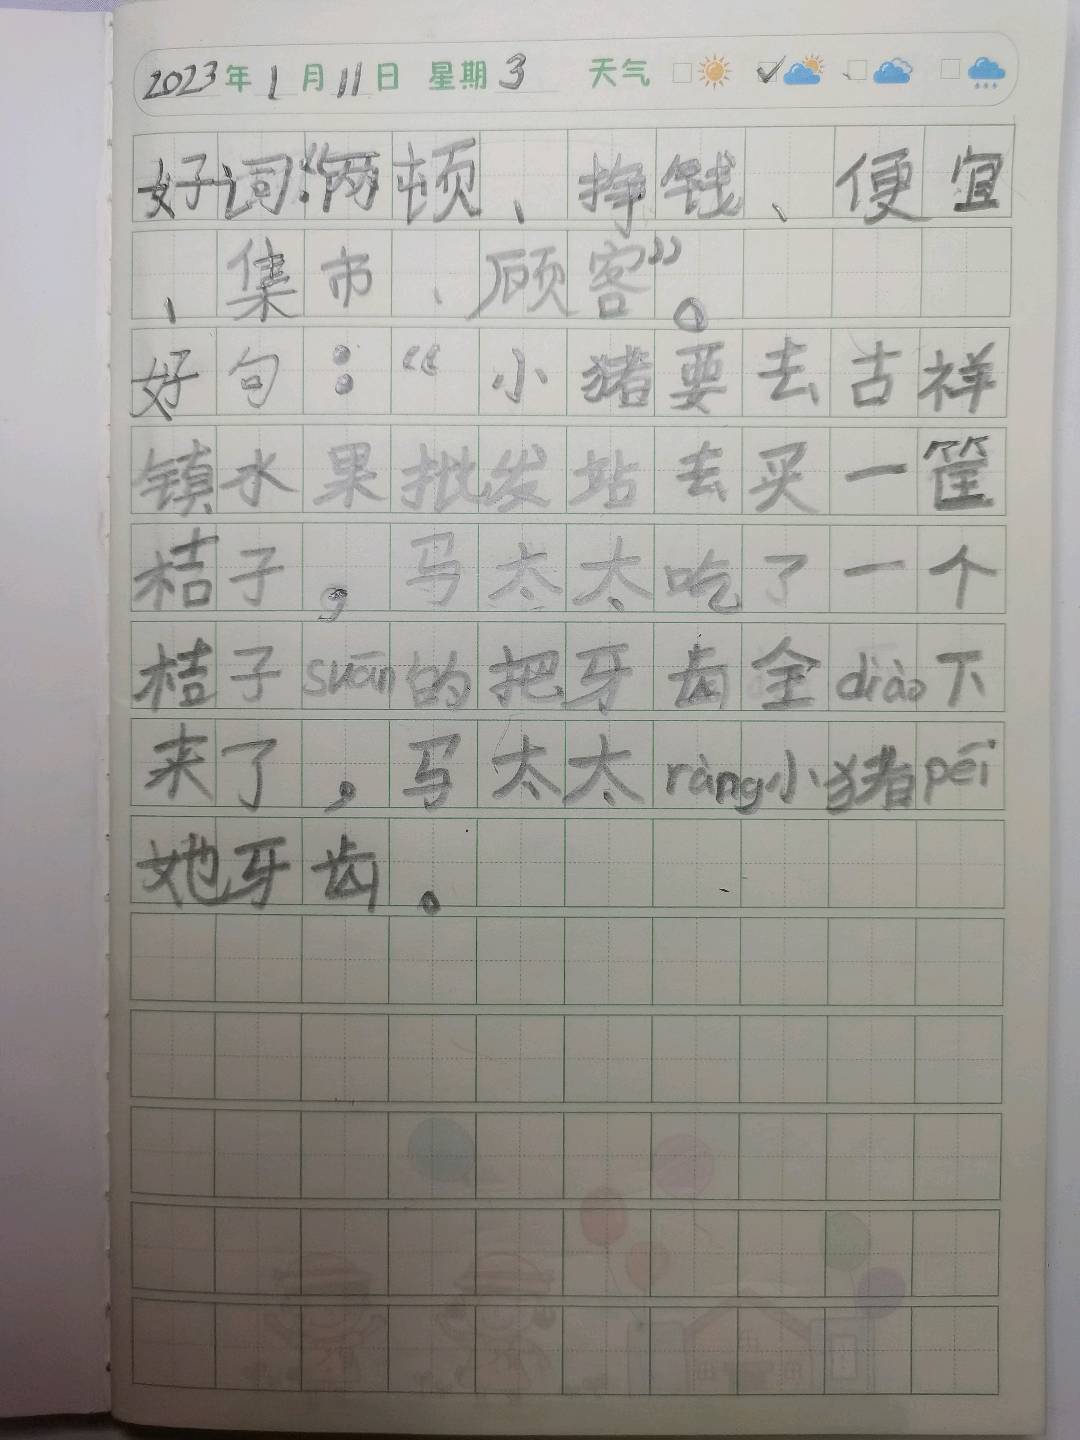 2023年1月11日 星期3 天气
好词:“两顿、挣钱、便宜
、集市、顾客”。
好句:“小猪要去古祥
镇水果批发站去买一筐
桔子,马太太吃了一个
桔子suān的把牙齿全diào下
来了,马太太ràng小猪péi
她牙齿。